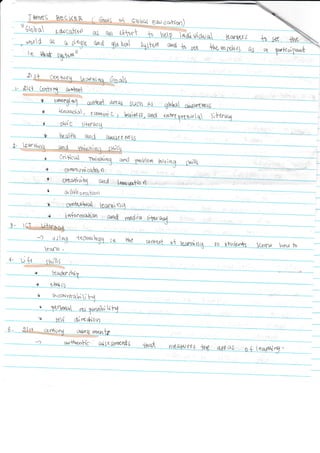 James BECKER ( Goals of Global Education)
"Global education as an effort to help individual learners to see the
world as a single and global system and to see themselves as a participant
in that system"
21st Century Learning Goals
1- 21st Century content
* emerging content areas such as global awareness
* financial, economic, business, and entrepreneurial literacy
* civic literacy
* health and awareness
2- learning and thinking skills
* Critical Thinking and problem solving skills
* communication
* creativity and innovation
* collaboration
* contextual learning
* information and media literacy
3- ICT literacy
-> using technology in the context of learning so students know how to
learn.
4- Life skills
* leadership
* ethics
* accountability
* personal responsibility
* self direction
5- 21st century assessments
-> authentic assessments that measures the areas of learning.